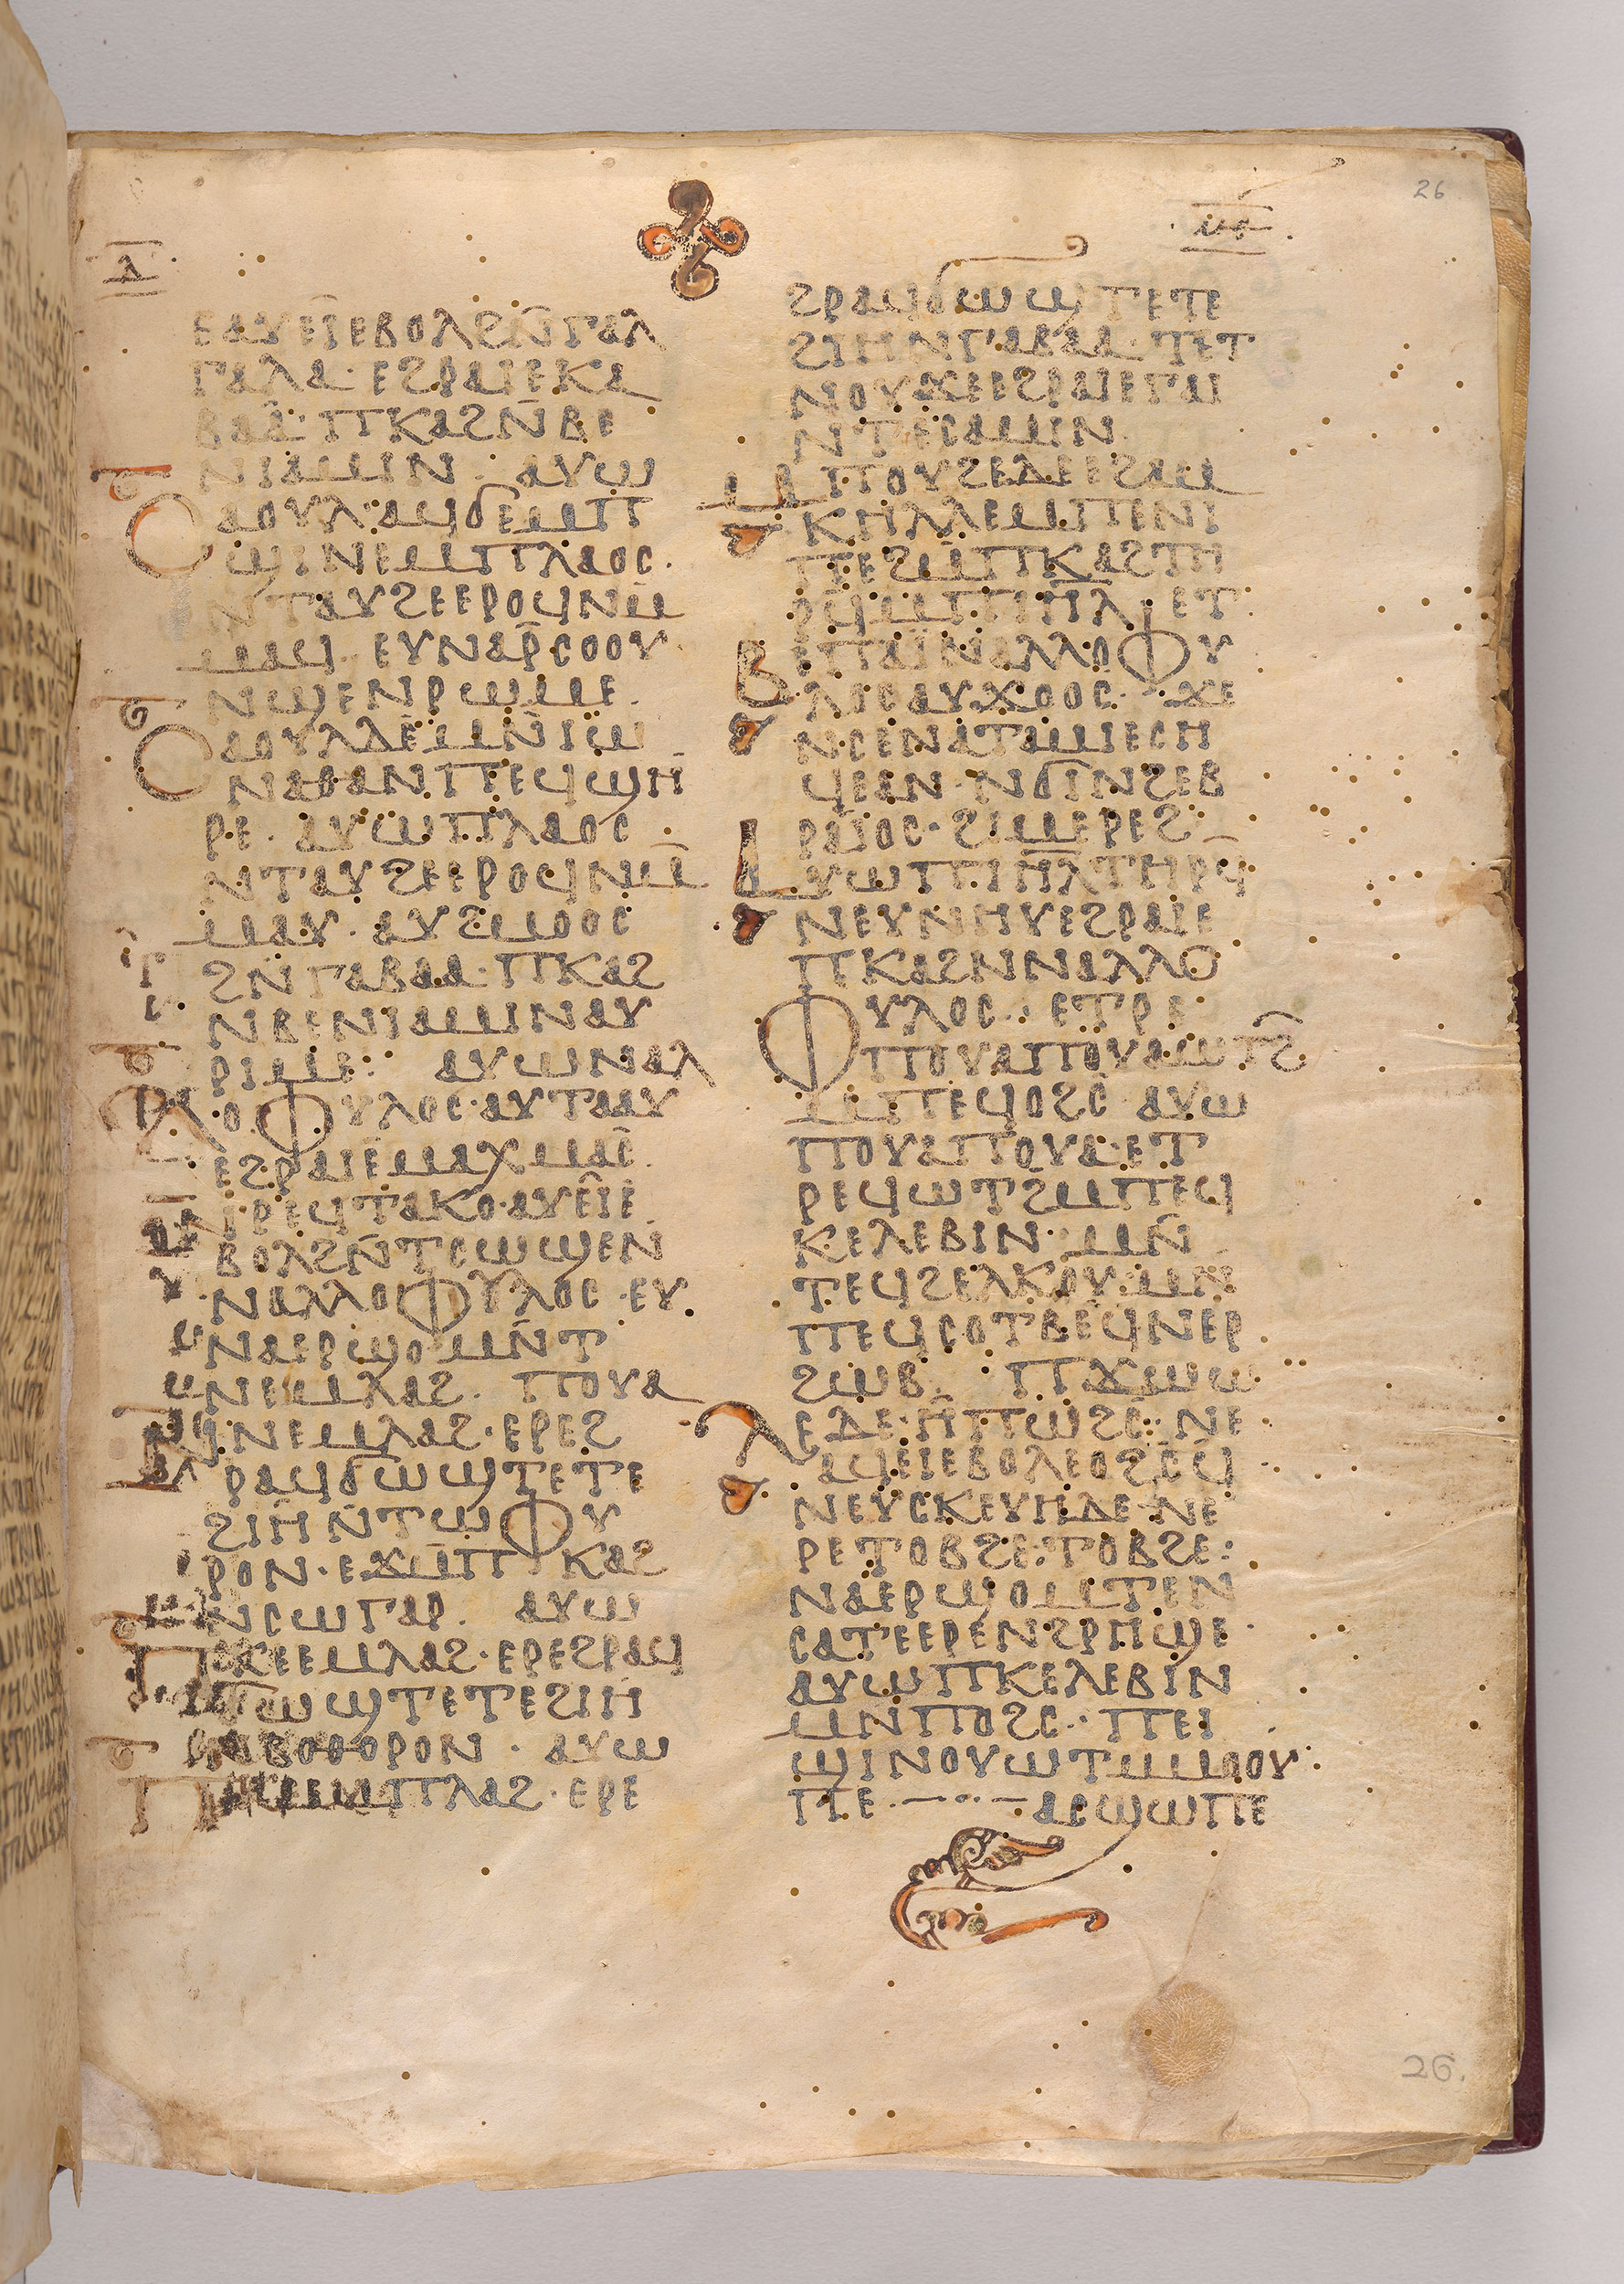 26
ⲗ
ⲉⲁⲩⲉⲓⲉⲃⲟⲗϩⲛ̄ⲅⲁⲗ
ⲅⲁⲗⲁ· ⲉϩⲣⲁⲓⲉⲕⲁ
ⲃⲁⲁ· ⲡⲕⲁϩⲛ̄ⲃⲉ
ⲛⲓⲁⲙⲓⲛ· ⲁⲩⲱ
ⲥⲁⲟⲩⲗ·ⲁϥϭⲉⲙⲡ
ϣⲓⲛⲉⲙⲡⲗⲁⲟⲥ·
ⲛⲧⲁⲩϩⲉⲉⲣⲟϥⲛⲙ̄
ⲙⲁϥ· ⲉⲩⲛⲁⲣ̄ⲥⲟⲟⲩ
ⲛϣⲉⲛⲣⲱⲙⲉ·
ⲥⲁⲟⲩⲗⲇⲉⲙⲛ̄ⲓⲱ
ⲛⲁⲑⲁⲛⲡⲉϥϣⲏ
ⲣⲉ· ⲁⲩⲱⲡⲗⲁⲟⲥ
ⲛⲧⲁⲩϩⲉⲉⲣⲟϥⲛⲙ̄
ⲙⲁⲩ· ⲁⲩϩⲙⲟⲟⲥ
ϩⲛ̄ⲅⲁⲃⲁⲁ·ⲡⲕⲁϩ
ⲛⲃⲉⲛⲓⲁⲙⲓⲛⲁⲩ
ⲣⲓⲙⲉ: ⲁⲩⲱⲛⲁⲗ
ⲗⲟⲫⲩⲗⲟⲥ·ⲁⲩⲧⲁⲁⲩ
ⲉϩⲣⲁⲓⲉⲙⲁⲭⲙⲁⲥ
ⲛⲣⲉϥⲧⲁⲕⲟ·ⲁⲩⲉⲓⲉ
ⲃⲟⲗϩⲛ̄ⲧⲥⲱϣⲉⲛ
ⲛⲁⲗⲗⲟⲫⲩⲗⲟⲥ·ⲉⲩ
ⲛⲁⲉⲣϣⲟⲙⲛ̄ⲧ
ⲛⲉⲙⲗⲁϩ· ⲡⲟⲩⲁ
ⲛⲉⲙⲗⲁϩ·ⲉⲣⲉϩ
ⲣⲁϥϭⲱϣⲧⲉⲧⲉ
ϩⲓⲏⲛ̄ⲧⲱⲫⲩ
ⲣⲟⲛ·ⲉϫⲙ̄ⲡ ⲕⲁϩ
ⲛⲥⲱⲅⲁⲣ· ⲁⲩⲱ
ⲡⲕⲉⲉⲙⲗⲁϩ·ⲉⲣⲉϩⲣⲁϥ
ϭⲱϣⲧⲉⲧⲉϩⲓⲏ
ⲃⲁⲓⲃⲟⲑⲟⲣⲟⲛ· ⲁⲩⲱ
ⲗⲁϩ·ⲉⲣⲉ
ϩⲣⲁϥϭⲱϣⲧⲉⲧⲉ
ϩⲓⲏⲛⲅⲁⲃⲁⲁ·ⲧⲉⲧ
ⲛⲟⲩϫⲉⲉϩⲣⲁⲓⲉⲅⲁⲓ
ⲛⲧⲉⲥⲁⲙⲓⲛ
ⲙⲡⲟⲩϩⲉⲇⲉⲉϩⲁⲙ
ⲕⲏⲗⲗⲉⲙⲡⲉⲛⲓ
ⲡⲉϩⲙ̄ⲡⲕⲁϩⲧⲏ
ⲣϥⲙⲡⲓⲏ̄ⲗ̄· ⲉⲧ
ⲃⲉⲡⲁⲓⲛⲁⲗⲗⲟⲫⲩ
ⲗⲟⲥⲁⲩϫⲟⲟⲥ· ϫⲉ
ⲛⲥⲉⲛⲁⲧⲁⲙⲓⲉⲥⲏ
ϥⲉⲁⲛ·ⲛϭⲓⲛϩⲉⲃ
ⲣⲁⲓⲟⲥ·ϩⲓⲙⲉⲣⲉϩ
ⲁⲩⲱⲡⲓⲏ̄ⲗ̄ⲧⲏⲣϥ̄
ⲛⲉⲩⲛⲏⲩⲉϩⲣⲁⲓⲉ
ⲡⲕⲁϩⲛⲛⲁⲗⲗⲟ
ⲫⲩⲗⲟⲥ· ⲉⲧⲣⲉ
ⲡⲟⲩⲁⲡⲟⲩⲁⲱⲧϩ̄
ⲙⲡⲉϥⲟϩⲥ̄ ⲁⲩⲱ
ⲡⲟⲩⲁⲡⲟⲩⲁ·ⲉⲧ
ⲣⲉϥⲱⲧϩⲙⲡⲉϥ
ⲕⲉⲗⲉⲃⲓⲛ·ⲙⲛ̄
ⲧⲉϥϩⲉⲗⲕⲟⲩ·ⲙⲛ
ⲡⲉϥⲥⲟⲧⲃⲉϥⲛⲉⲣ
ϩⲱⲃ· ⲡϫⲱⲱ
ⲗⲉⲇⲉ·ⲏ̄ⲡⲱϩⲥ̄: ⲛⲉ
ⲁϥⲉⲓⲉⲃⲟⲗⲉⲟϩⲥ̄ϥ
ⲛⲉⲩⲥⲕⲉⲩⲏⲇⲉ·ⲛⲉ
ⲣⲉⲧⲟⲃϩⲉ:ⲧⲟⲃϩⲉ:
ⲛⲁⲉⲣϣⲟⲙⲧⲉⲛ
ⲥⲁⲧⲉⲉⲣⲉⲛϩⲣⲏϣⲉ·
ⲁⲩⲱⲡⲕⲉⲗⲉⲃⲓⲛ
ⲙⲛⲡⲟϩⲥ· ⲡⲉⲓ
ϣⲓⲛⲟⲩⲱⲧⲙⲙⲟⲟⲩ:
ⲡⲉ ⲁⲥϣⲱⲡⲉ
26.